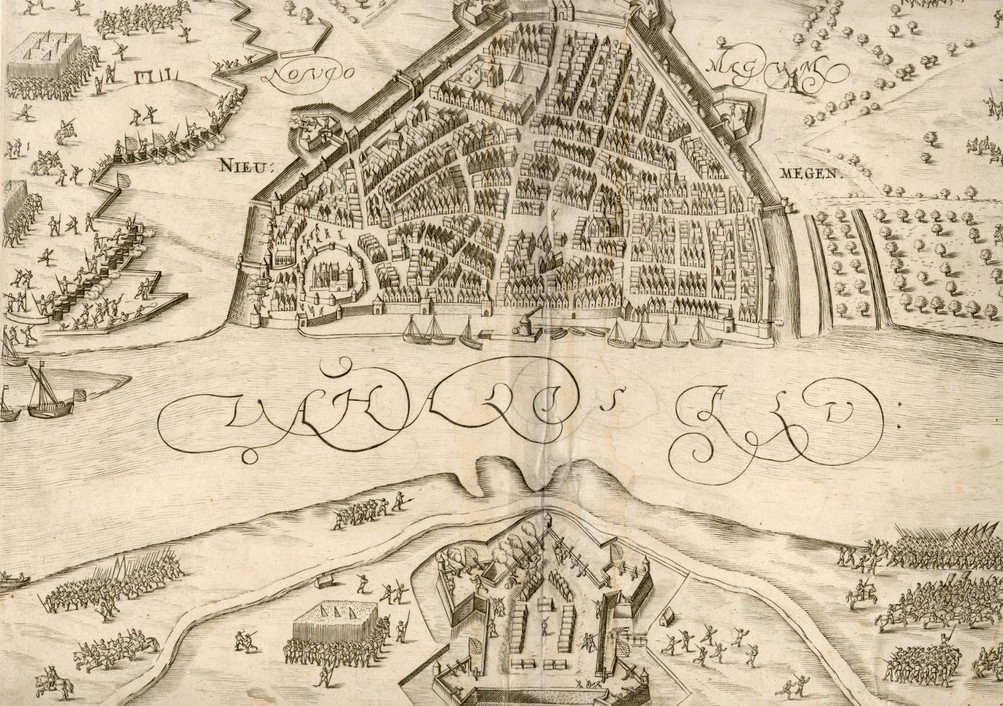 NOVIO
MAGVM
NIEU:
MEGEN.
VAHALIS FLU